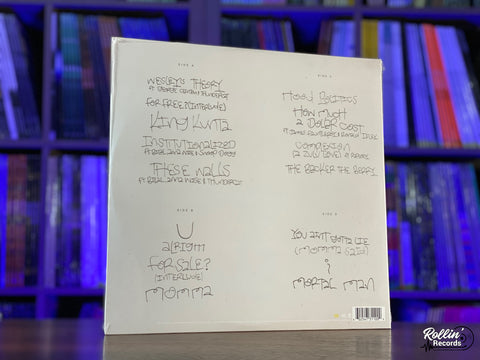 SIDE A
WESLEY'S THEORY
FT GEORGE CLINTON & THUNDERCAT
FOR FREE? (INTERLUDE)
KING KUNTA
INSTITUTIONALIZED
FT BILAL, ANNA WISE & SNOOP DOGG
THESE WALLS
FT BILAL, ANNA WISE & THUNDERCAT
SIDE B
U
ALRIGHT
FOR SALE?
(INTERLUDE)
MOMMA
HOOD POLITICS
HOW MUCH
A DOLLAR COST
FT JAMES FAUNTLEROY & RONALD ISLEY
COMPLEXION
(A ZULU LOVE) FT RAPSODY
THE BLACKER THE BERRY
YOU AINT GOTTA LIE
(MOMMA SAID)
i
MORTAL MAN
Rollin'
Records